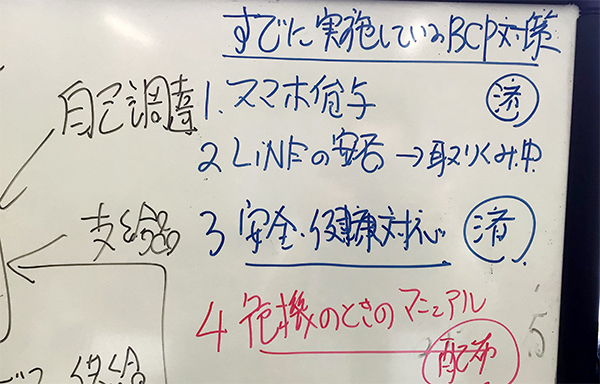 すでに実施しているBCP対策
1.スマホ貸与 済
2 LiNEの安否→取りくみ中
3 安全・健康対応 済
4 危機のときのマニュアル
配布
自己調達
支給品
供給
5